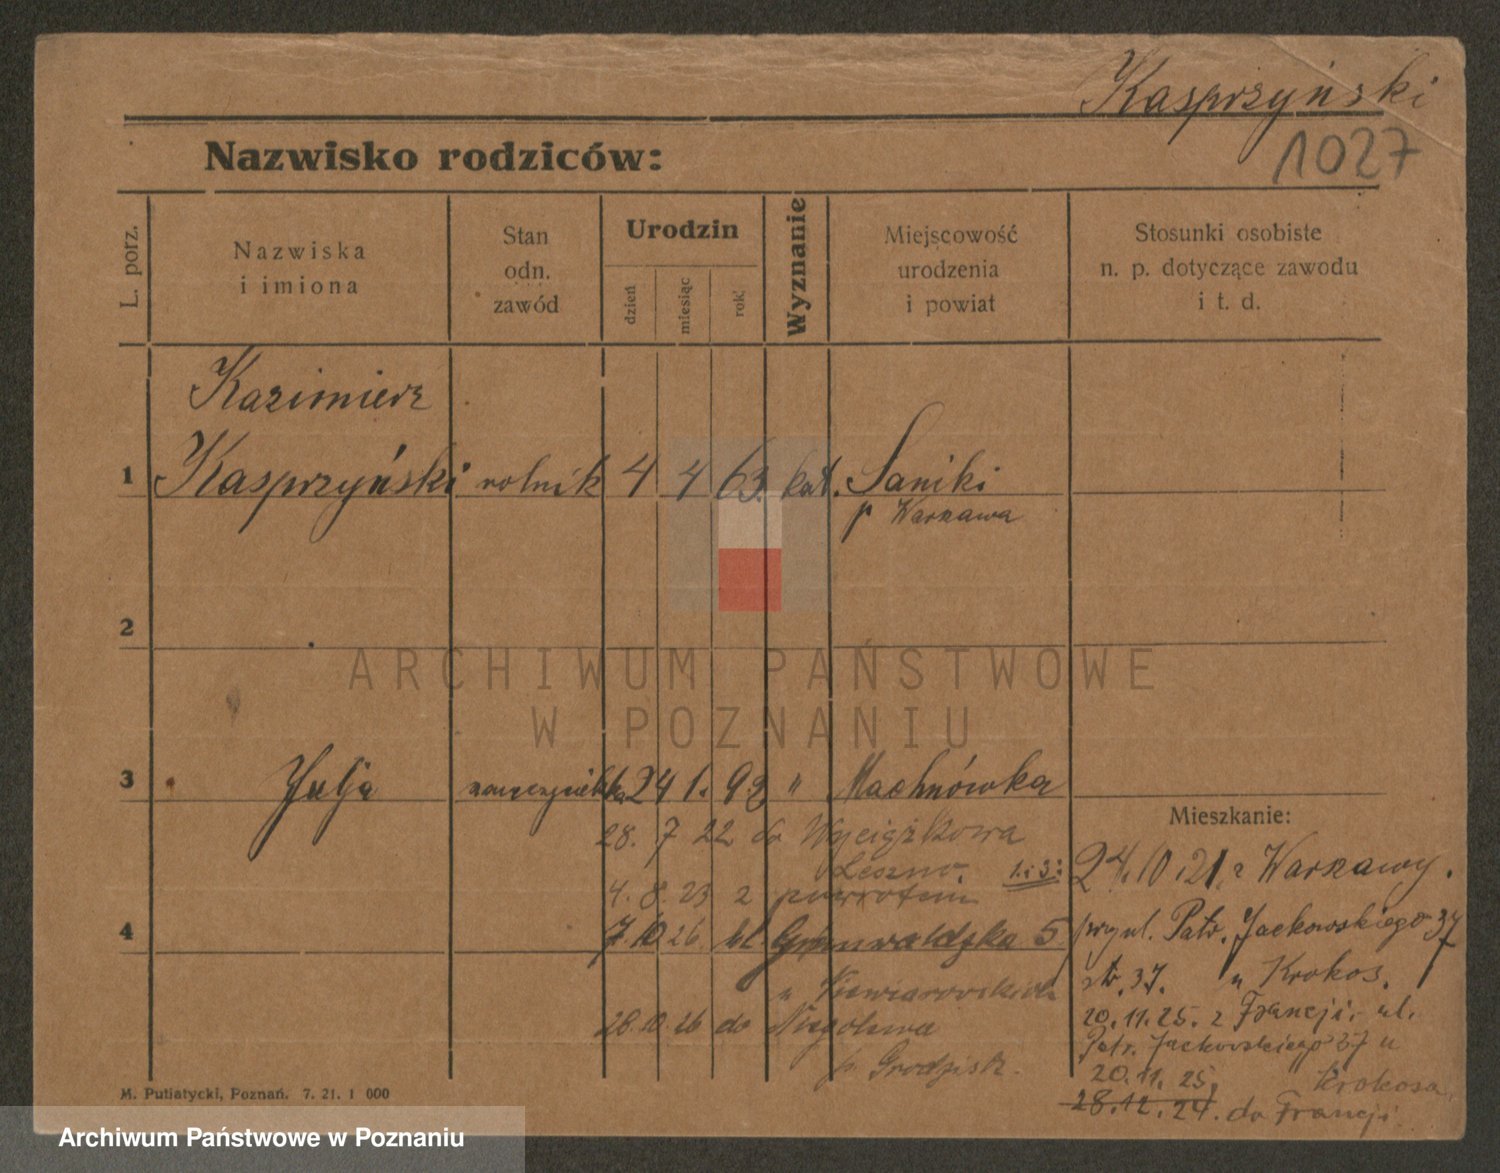 Kasprzyński
1027
Nazwisko rodziców:
L. porz.
Nazwiska
i imiona
Stan
odn.
zawód
Urodzin
dzień
miesiąc
rok
Wyznanie
Miejscowość
urodzenia
i powiat
Stosunki osobiste
n. p. dotyczące zawodu
i t. d.
Kazimierz
1 Kasprzyński rolnik 4 4 63. kat. Saniki
p Warszawa
2
ARCHIWUM PAŃSTWOWE
W POZNANIU
3 Julja nauczycielka 24 1. 93 " Machnówka
Mieszkanie:
28. 7 22 do Wyciążkowa
Leszno. 1. i 3:
4. 8. 23 z powrotem
4
7.10.26. bl. Grunwaldzka 5
u
28.10.26 do Niegolewa
p. Grodzisk.
24.10.21. z Warszawy.
przy ul. Patr. Jackowskiego 37
37. u Krokos.
20.11.25. z Francji. ul.
Patr. Jackowskiego 37 u
20.11.25. Krokosa.
28.12.24. do Francji.
M. Putiatycki, Poznań. 7. 21. 1 000
Archiwum Państwowe w Poznaniu